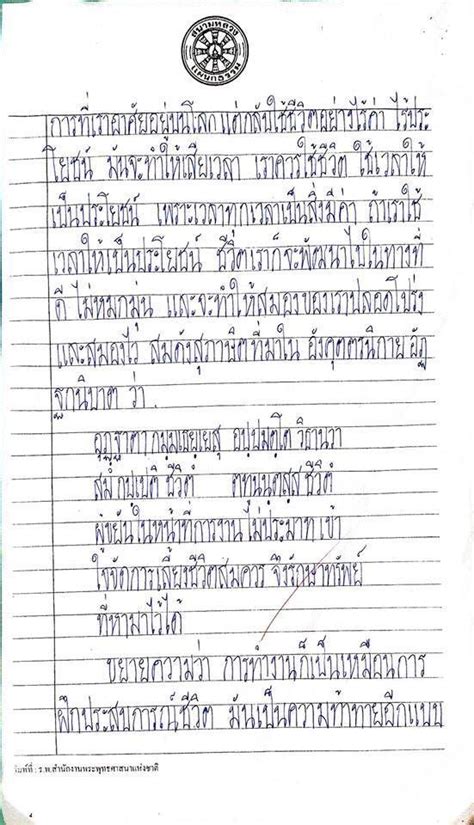 สนามหลวง
แผนกธรรม
การที่เราอาศัยอยู่บนโลก แต่กลับใช้ชีวิตอย่างไร้ค่า ไร้ประ
โยชน์ มันจะทำให้เสียเวลา เราควรใช้ชีวิต ใช้เวลาให้
เป็นประโยชน์ เพราะเวลาทุกเวลาเป็นสิ่งมีค่า ถ้าเราใช้
เวลาให้เป็นประโยชน์ ชีวิตเราก็จะพัฒนาไปในทางที่
ดี ไม่หมกมุ่น และจะทำให้สมองของเราปลอดโปร่ง
และสมองไว สมดังสุภาษิตที่มาใน อังคุตตรนิกาย อัฏ
ฐกนิบาต ว่า
อุฏฺฐาตา กมฺมเธยฺเยสุ อปฺปมตฺโต วิธานวา
สมํ กปฺเปติ ชีวิตํ ตทนฺนุตสฺส ชีวิตํ
ผู้ขยันในหน้าที่การงาน ไม่ประมาท เข้า
ใจจัดการเลี้ยงชีวิตสมควร จึงรักษาทรัพย์
ที่หามาไว้ได้
ขยายความว่า การทำงานก็เป็นเหมือนการ
ฝึกประสบการณ์ชีวิต มันเป็นความท้าทายอีกแบบ
พิมพ์ที่ : ร.พ.สำนักงานพระพุทธศาสนาแห่งชาติ